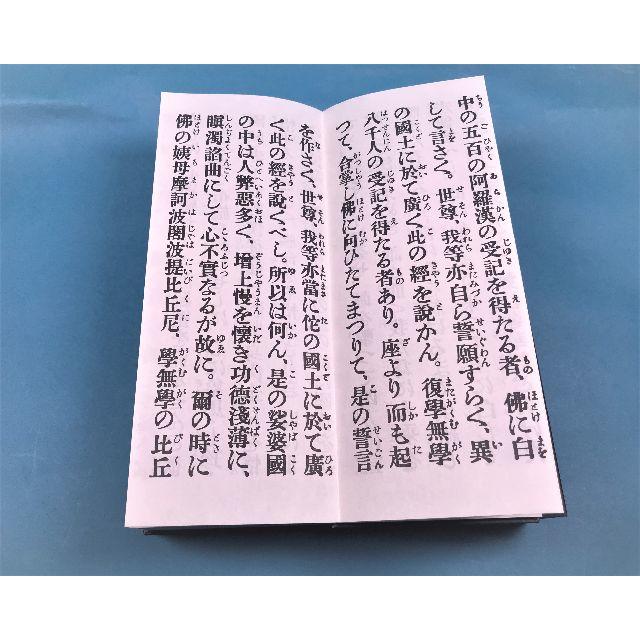 中の五百の阿羅漢の受記を得たる者、佛に白
して言さく。世尊、我等亦自ら誓願すらく、異
の國土に於て廣く此の經を說かん。復學無學
八千人の受記を得たる者あり。座より而も起
つて、合掌し佛に向ひたてまつりて、是の誓言
を作さく、世尊、我等亦當に佗の國土に於て廣
く此の經を說くべし。所以は何ん、是の娑婆國
の中は人弊惡多く、增上慢を懷き功德淺薄に、
瞋濁諂曲にして心不實なるが故に。爾の時に
佛の姨母摩訶波闍波提比丘尼、學無學の比丘